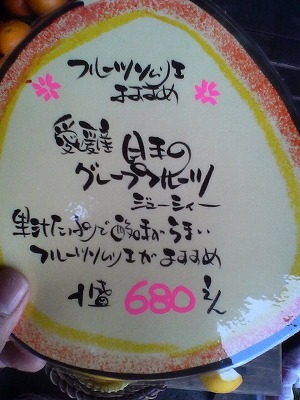 フルーツソムリエ
おすすめ
愛媛産 日本の
グレープフルーツ
ジューシィー
果汁たっぷりで酸味がうまい
フルーツソムリエがおすすめ
1盛 680えん